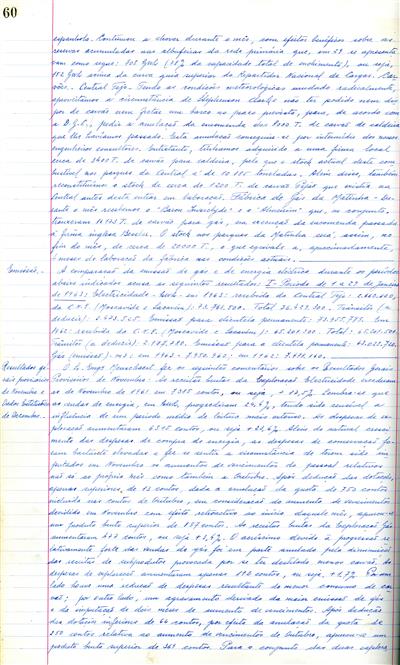 60
espanhola. Continuou a chover durante o mês, com efeitos benéficos sobre as
reservas acumuladas nas albufeiras da rede primária que, em 29 se apresenta
vam como segue: 708 Gwh (78% da capacidade total de enchimento), ou seja,
182 Gwh acima da curva guia superior do Repartidor Nacional de Cargas. Car
vões. Central Tejo. Tendo as condições meteorológicas mudado radicalmente,
aproveitámos a circunstância de Stephenson Clarke não ter podido nem dis
por de carvão nem fretar um barco no prazo previsto, para, de acordo com
a D.G.C., pedir a anulação da encomenda das T. de carvão de caldeira
que lhe havíamos passado. Esta anulação conseguiu-se por intermédio dos nossos
engenheiros consultores. Entretanto, tínhamos adquirido a uma firma local
cerca de 3400 T. de carvão para caldeira, pelo que o stock actual deste com
bustível nos parques da Central é de 10.105 toneladas. Além disso, também
reconstituímos o stock de cerca de 1200 T. de carvão que existia na
Central antes desta entrar em laboração. Fábrica de Gás da Matinha - Du-
rante o mês recebemos o "Baron Inverclyde" e o "Almerian" que, no conjunto,
trouxeram 11.753 T. de carvão para gás, em execução da encomenda passada
à firma inglesa. O stock nos parques da Matinha será, assim, no
fim do mês, de cerca de 20000 T., o que equivale a, aproximadamente,
meses de laboração da fábrica nas condições actuais.
Emissões. - A comparação da emissão de gás e de energia eléctrica durante os períodos
abaixo indicados acusa os seguintes resultados: I - Período de 1 a 29 de Janeiro
de 1963: Electricidade - kwh - em 1963: recebido da Central Tejo: 1.660.600,
da C.N.E. (Moscavide e Sacavém): Total Trânsito (a
deduzir): Emissões para clientela permanente: Em
1962: recebido da C.N.E. (Moscavide e Sacavém): 65.201.500. Total: 65.201.500.
Trânsito (a deduzir): Emissões para a clientela permanente:
Gás (emissões): m3: em 1963 - 7.950.960; em 1962:
Resultados ge
rais provisórios
de Novembro e
Dados Estatísticos
de Dezembro.
O Sr. Engº fez os seguintes comentários sobre os Resultados Gerais
Provisórios de Novembro: As receitas brutas da Exploração Electricidade excederam
as de Novembro de 1961 em contos, ou seja, + 13,5%. Lembra-se que
as vendas de energia, em kwh, progrediram 24,4%, tendo sido sensível a
influência de um período médio de leitura mais extenso. As despesas de ex
ploração aumentaram contos, ou seja + 23,4%. Além do natural cresci
mento das despesas de compra de energia, as despesas de conservação fo
ram bastante elevadas e fez-se sentir a circunstância de terem sido im
putados em Novembro os aumentos de vencimentos do pessoal relativos
não só ao próprio mês como também a Outubro. Após dedução das dotações,
apenas superiores, de 13 contos, dada a anulação da quota de 750 contos
incluída nas contas de Outubro, em consideração do aumento de vencimentos
decidido em Novembro com efeito retroactivo ao início daquele mês, apurou-se
um produto bruto superior de 187 contos. As receitas brutas da Exploração Gás
aumentaram contos, ou seja + 3,4%. O acréscimo devido à progressão re
lativamente forte das vendas de gás foi em parte anulado pela diminuição
das receitas de subprodutos provocada por se ter destilado menos carvão. As
despesas de exploração aumentaram apenas contos, ou seja, + 0,7%. Por um
lado houve uma redução de despesas resultante do menor consumo de car
vão; por outro lado, um agravamento derivado da maior emissão de gás
e da imputação de dois meses de aumento de vencimentos. Após dedução
das dotações inferiores de 64 contos, por efeito da anulação da quota de
250 contos relativa ao aumento de vencimentos de Outubro, apurou-se um
produto bruto superior de 361 contos. Para o conjunto das duas explora